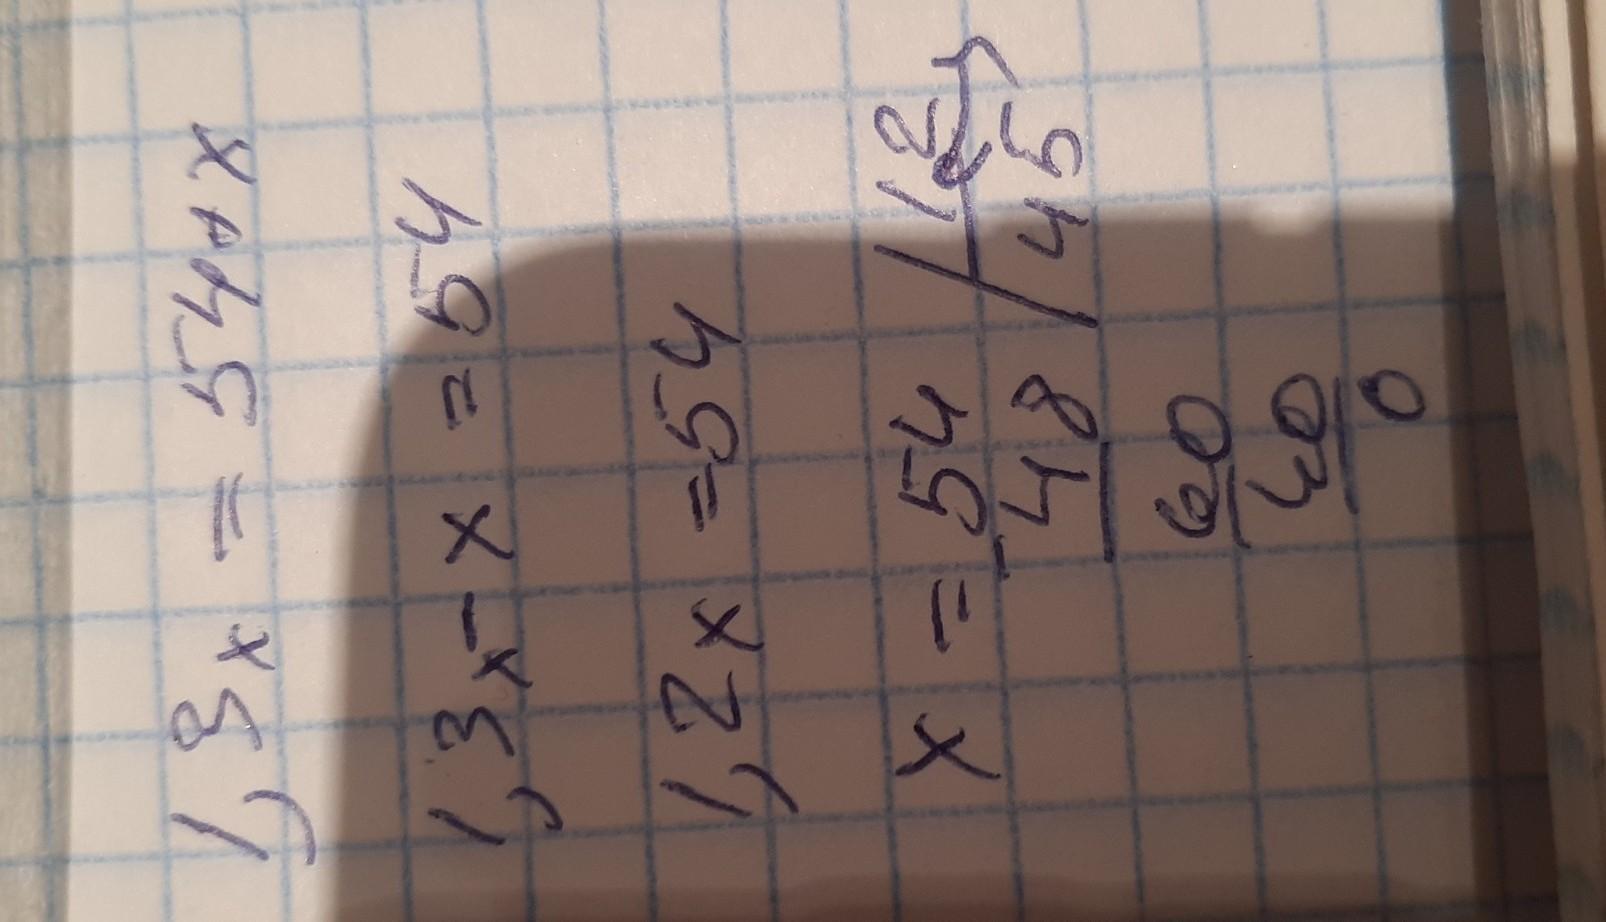 1,3x = 54+x
1,3x - x = 54
1,2x = 54
x = 54 | 12
- 48 | 45
60
60
0